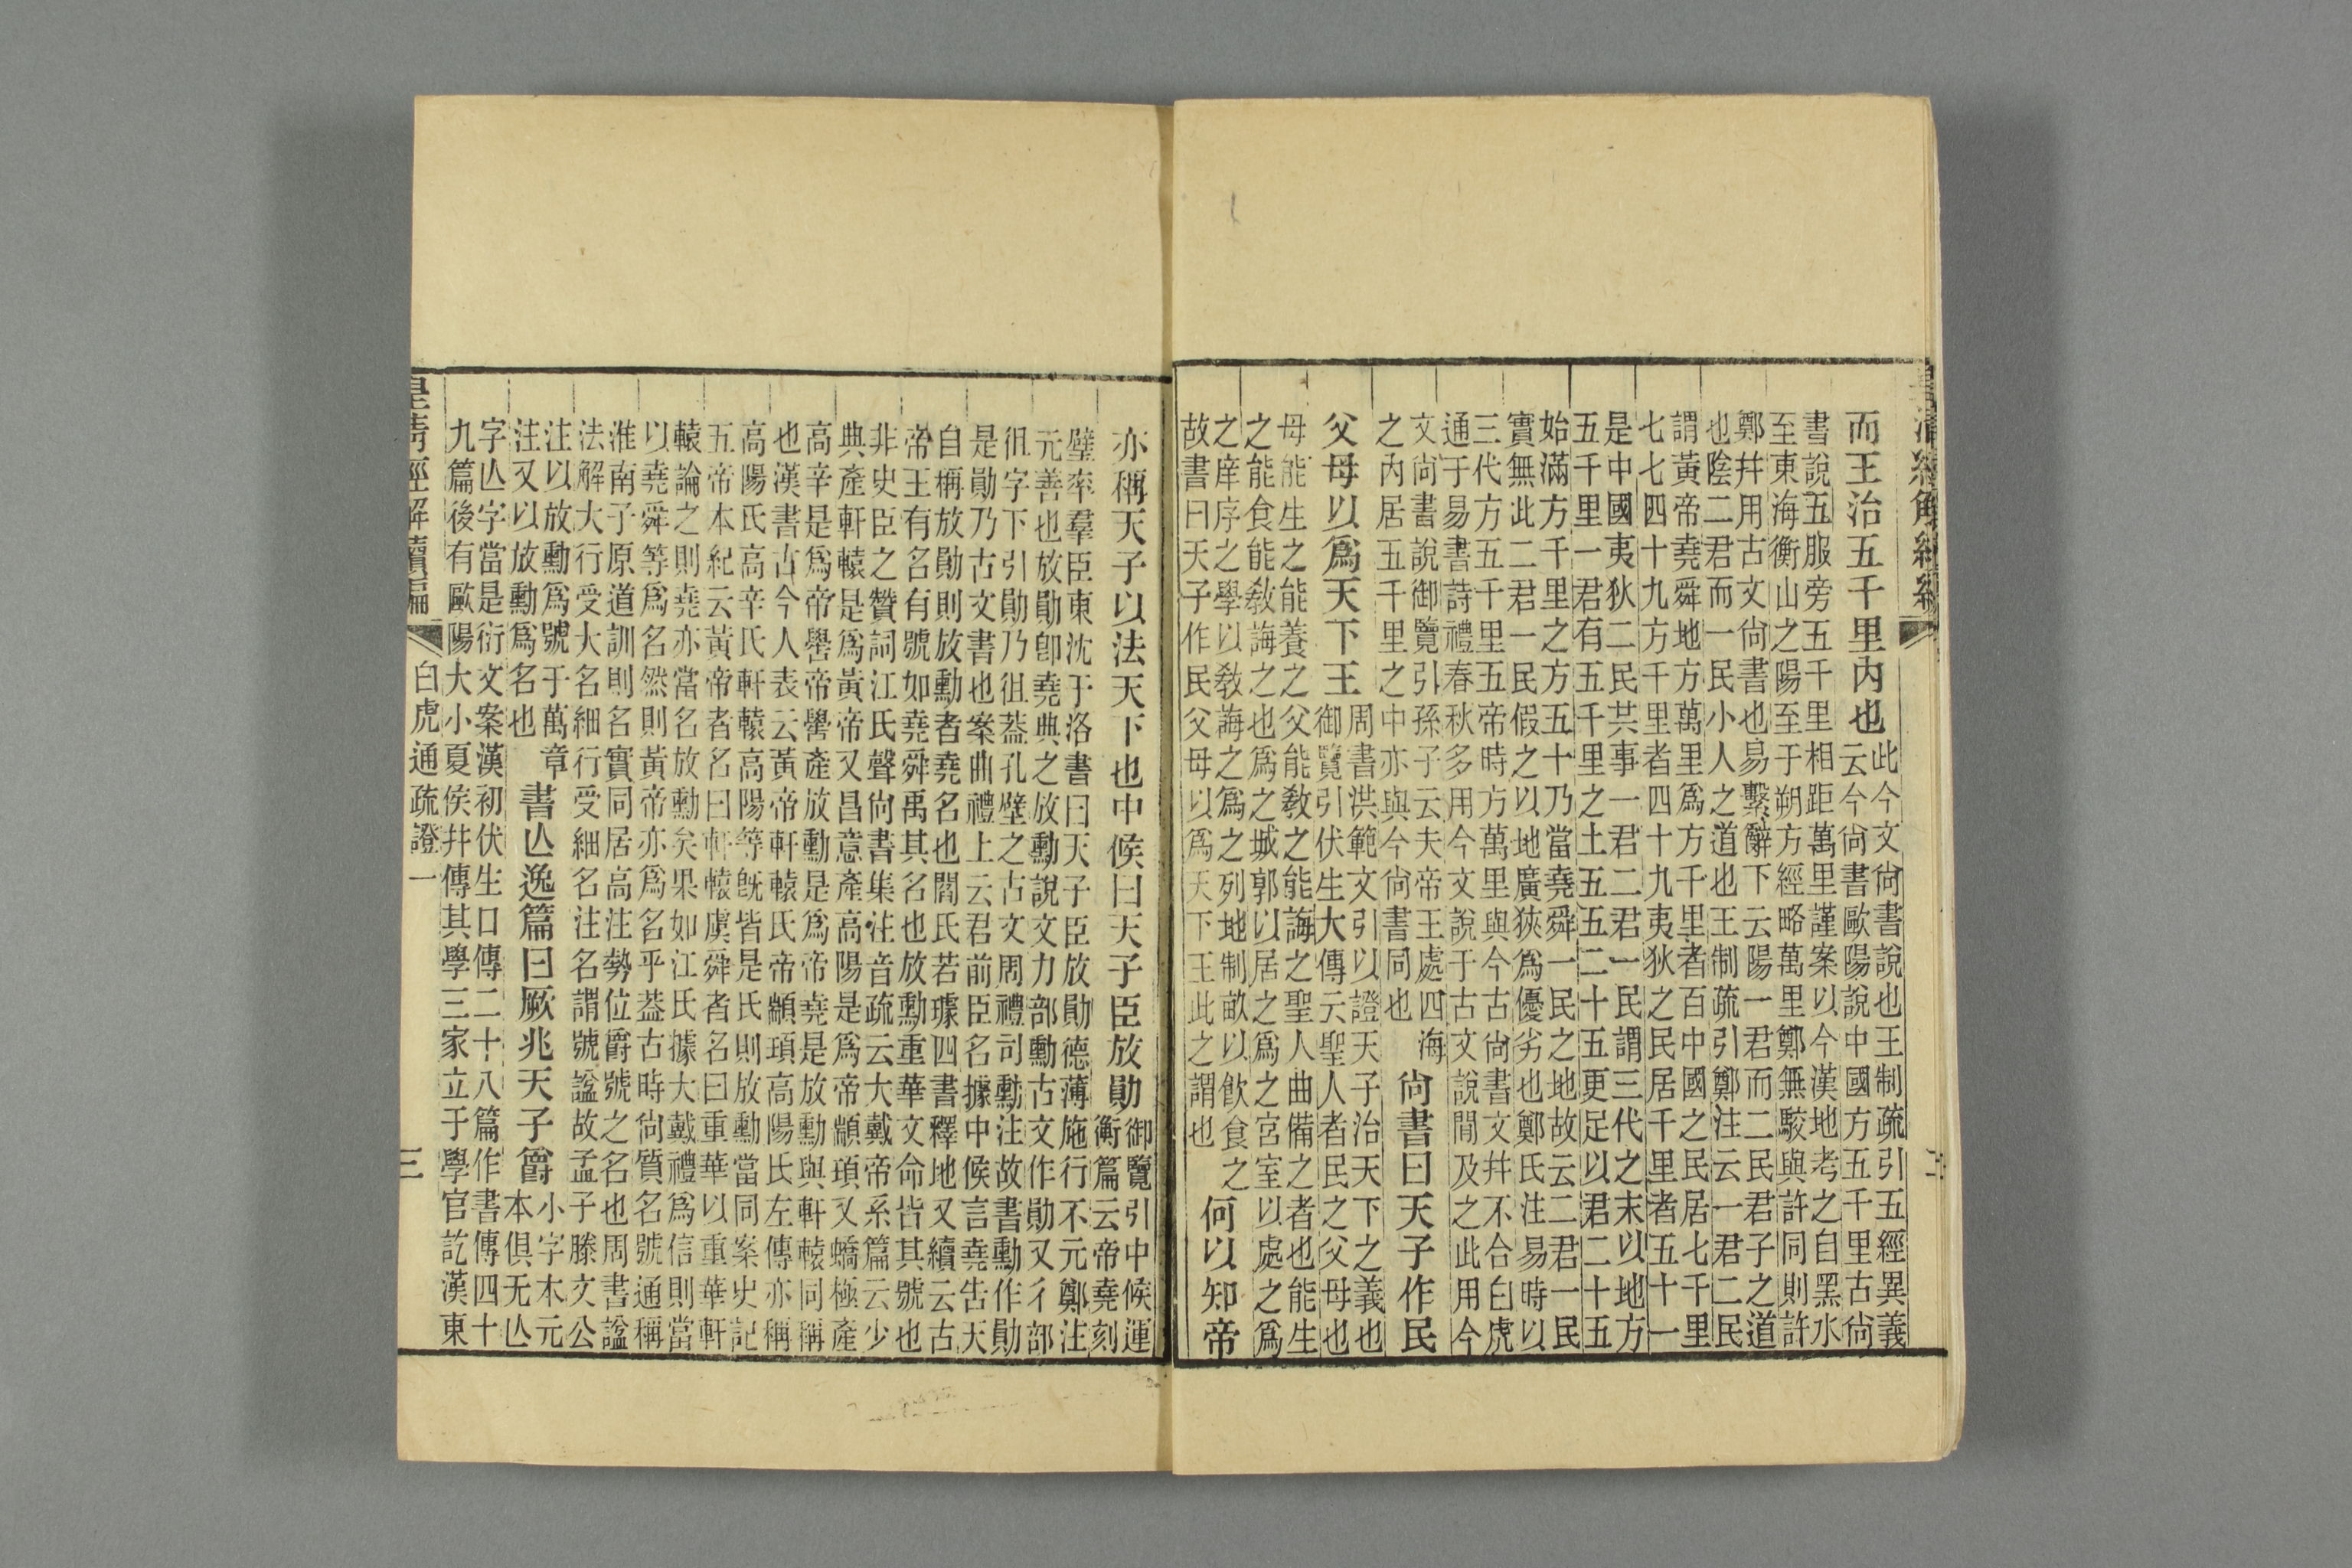 皇清經解續編
二
而王治五千里內也
此今文尙書說也王制疏引五經異義
云今尙書歐陽說中國方五千里古尙
書說五服旁五千里相距萬里謹案以今漢地考之自黑水
至東海衡山之陽至于朔方經略萬里鄭無駮與許同則許
鄭幷用古文尙書也易繫辭下云陽一君而二民君子之道
也陰二君而一民小人之道也王制疏引鄭注云一君二民
謂黃帝堯舜地方萬里爲方千里者百中國之民居七千里
七七四十九方千里者四十九夷狄之民居千里者五十一
是中國夷狄二民共事一君二君一民謂三代之末以地方
五千里一君有五千里之土五五二十五更足以君二十五
始滿方千里之方五十乃當堯舜一民之地故云二君一民
實無此二君一民假之以地廣狹爲優劣也鄭氏注易時以
三代方五千里五帝時方萬里與今古尙書文幷不合白虎
通于易書詩禮春秋多用今文說于古文說閒及之此用今
文尙書說御覽引孫子云夫帝王處四海
之內居五千里之中亦與今尙書同也
尙書曰天子作民
父母以爲天下王
周書洪範文引以證天子治天下之義也
御覽引伏生大傳云聖人者民之父母也
母能生之能養之父能敎之能誨之聖人曲備之者也能生
之能食能敎誨之也爲之城郭以居之爲之宮室以處之爲
之庠序之學以敎誨之爲之列地制畝以飮食之
故書曰天子作民父母以爲天下王此之謂也
何以知帝
亦稱天子以法天下也中候曰天子臣放勛
御覽引中候運
衡篇云帝堯刻
璧率羣臣東沈于洛書曰天子臣放勛德薄施行不元鄭注
元善也放勛卽堯典之放勳說文力部勳古文作勛又彳部
徂字下引勛乃徂葢孔壁之古文周禮司勳注故書勳作勛
是勛乃古文書也案曲禮上云君前臣名據中候言堯告天
自稱放勛則放勳者堯名也閻氏若璩四書釋地又續云古
帝王有名有號如堯舜禹其名也放勳重華文命皆其號也
非史臣之贊詞江氏聲尙書集注音疏云大戴帝系篇云少
典產軒轅是爲黃帝又昌意產高陽是爲帝顓頊又蟜極產
高辛是爲帝嚳帝嚳產放勳是爲帝堯是放勳與軒轅同稱
也漢書古今人表云黃帝軒轅氏帝顓頊高陽氏左傳亦稱
高陽氏高辛氏軒轅高陽等旣皆是氏則放勳當同案史記
五帝本紀云黃帝者名曰軒轅虞舜者名曰重華以重華軒
轅論之則堯亦當名放勳矣果如江氏據大戴禮爲信則當
以堯舜等爲名然則黃帝亦爲名乎葢古時尙質名號通稱
淮南子原道訓則名實同居高注勢位爵號之名也周書諡
法解大行受大名細行受細名注名謂號諡故孟子滕文公
注以放勳爲號于萬章
注又以放勳爲名也
書亾逸篇曰厥兆天子爵
小字本元
本俱无亾
字亾字當是衍文案漢初伏生口傳二十八篇作書傳四十
九篇後有歐陽大小夏侯幷傳其學三家立于學官訖漢東
皇清經解續編
白虎通疏證一
三